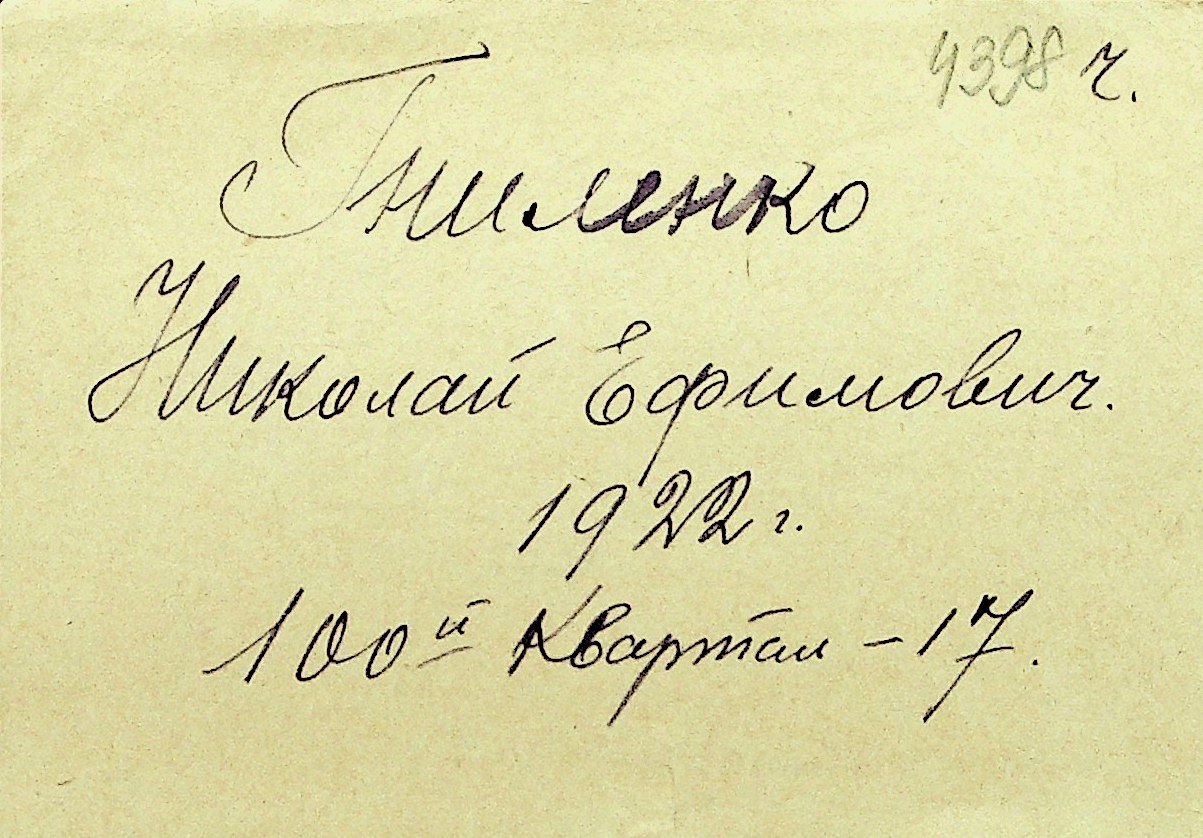 4398 ч.
Гниленко
Николай Ефимович.
1922 г.
100й Квартал - 17.